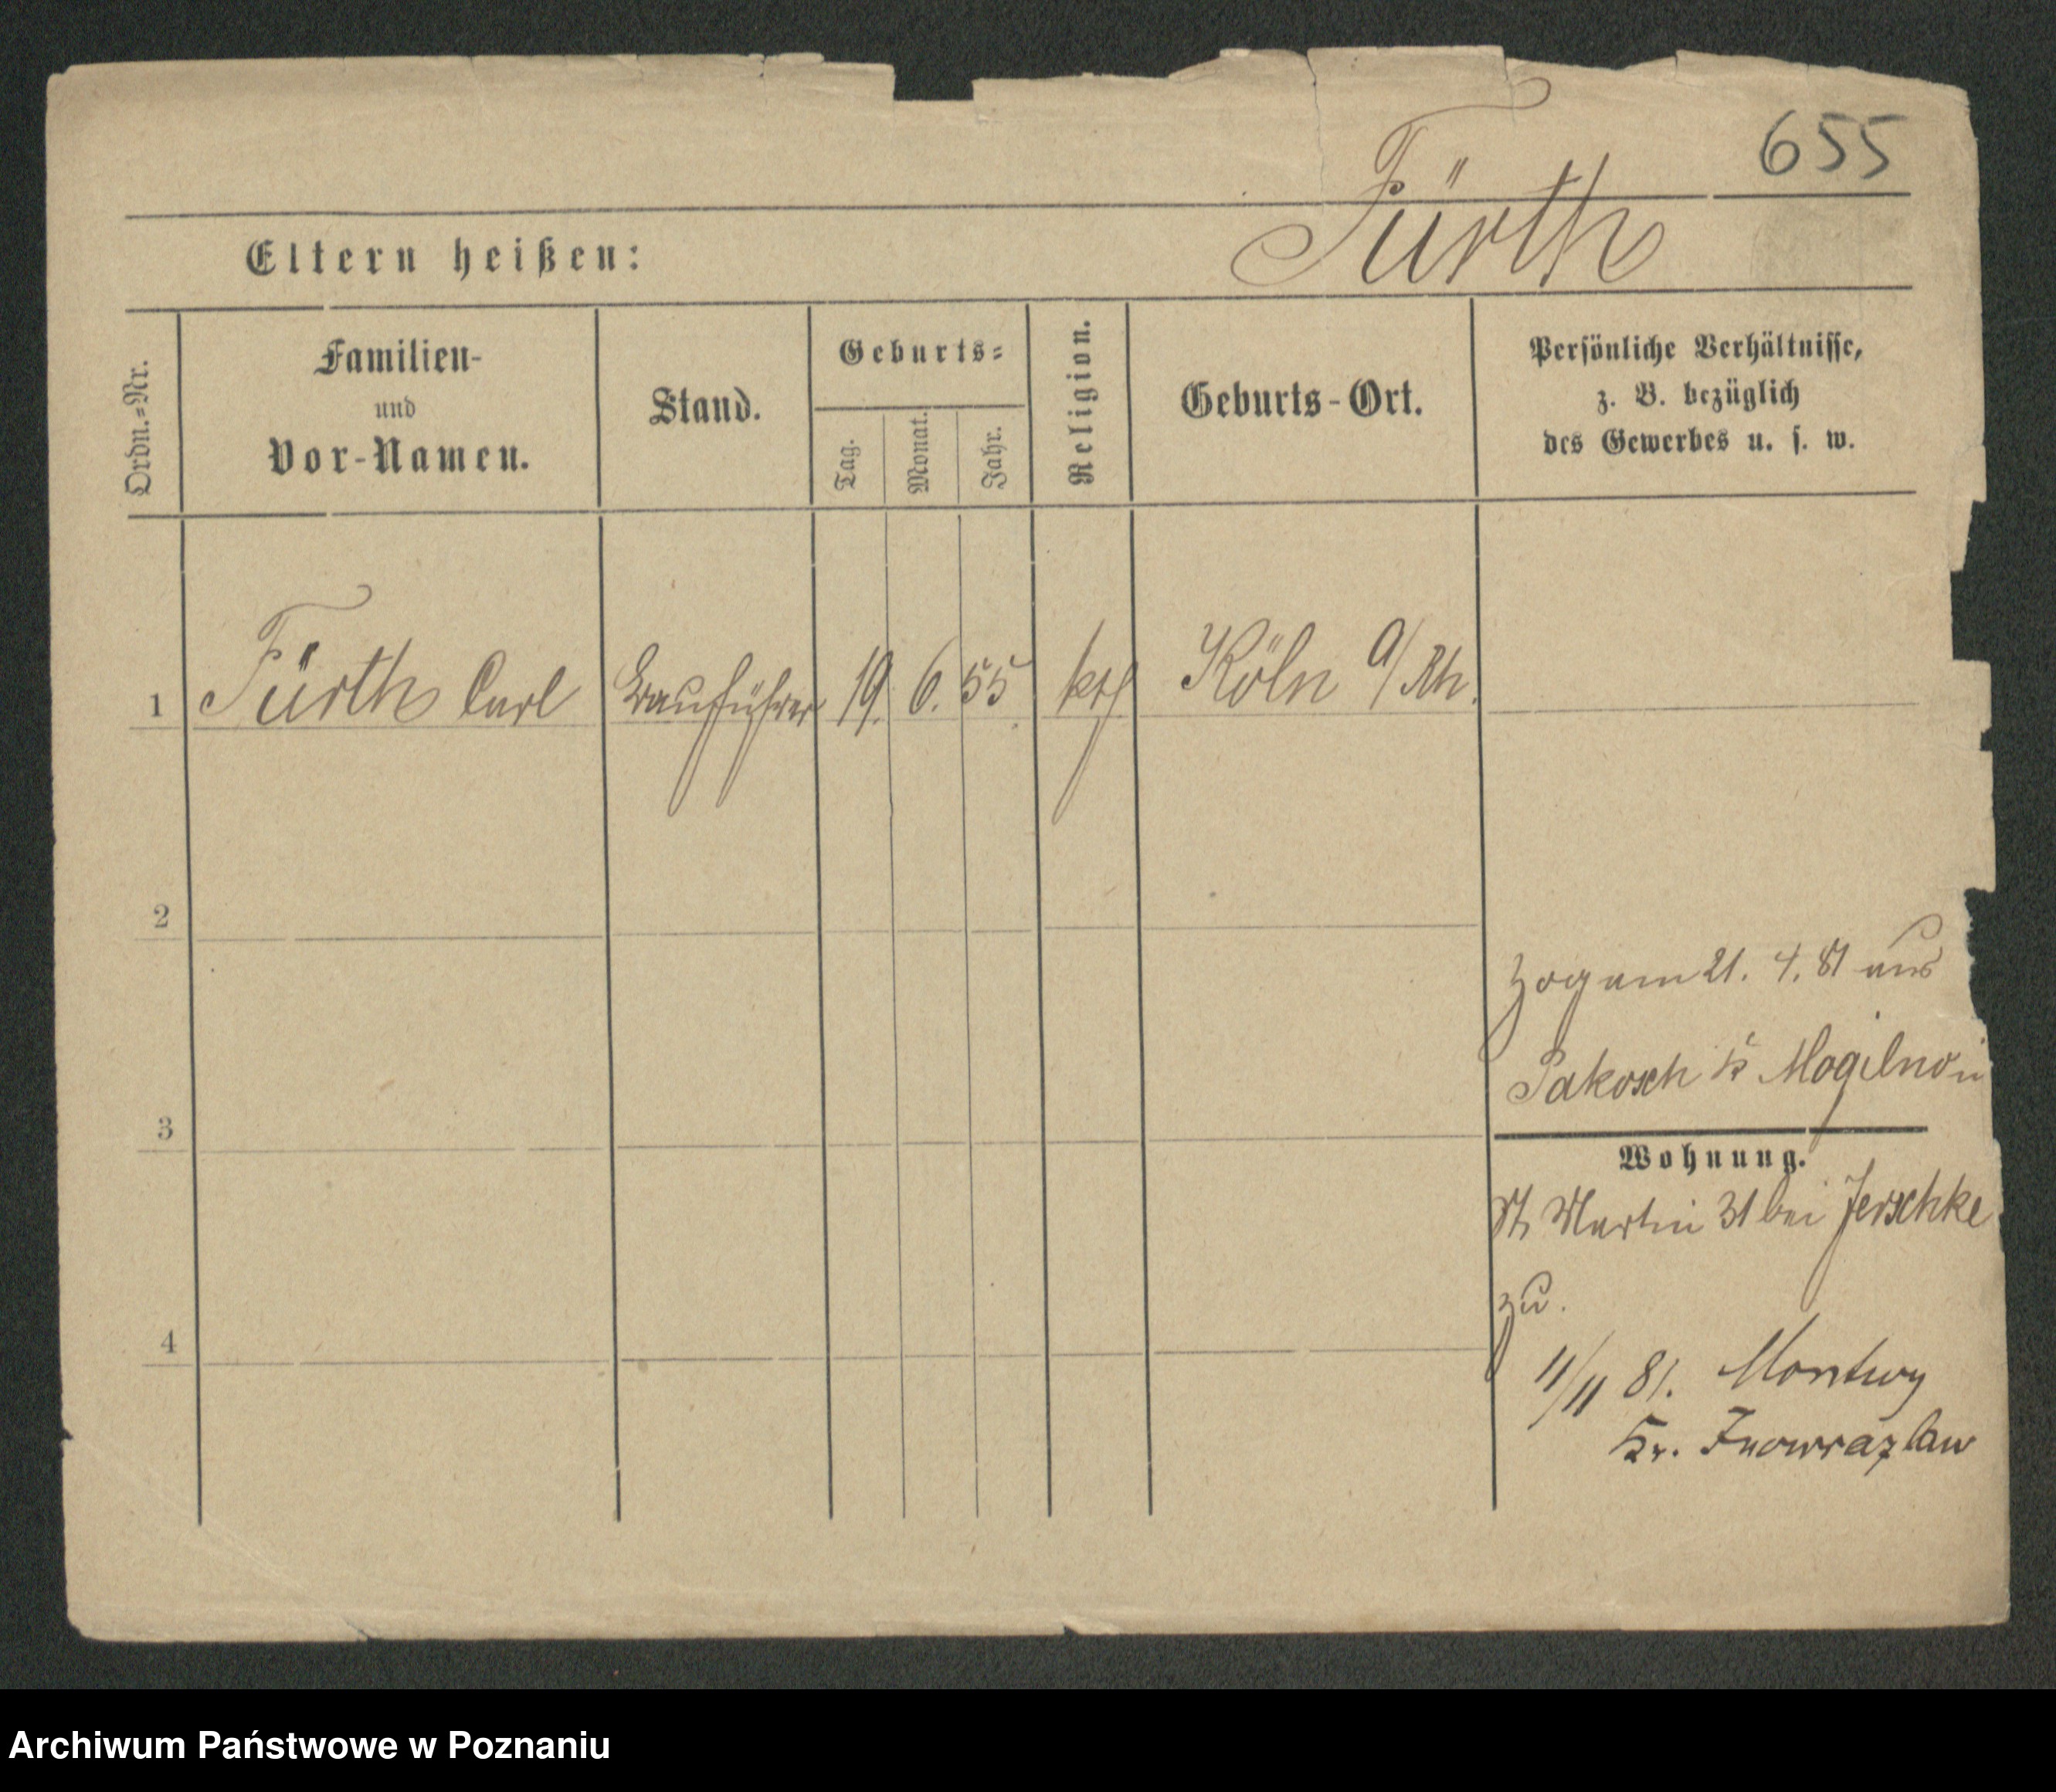 655
Fürth
Eltern heißen:
Ordn.=Nr.
Familien-
und
Vor-Namen.
Stand.
Geburts=
Tag.
Monat.
Jahr.
Religion.
Geburts-Ort.
Persönliche Verhältnisse,
z. B. bezüglich
des Gewerbes u. s. w.
1 Fürth Carl Bauführer 19. 6. 55 kth Köln a/Rh.
2
zog am 21. 4. 81 aus
Pakosch Kr Mogilno in
3
Wohnung.
St Martin 31 bei Jerschke
zu.
4
11/11 81. Montwy
Kr. Inowrazlaw
Archiwum Państwowe w Poznaniu